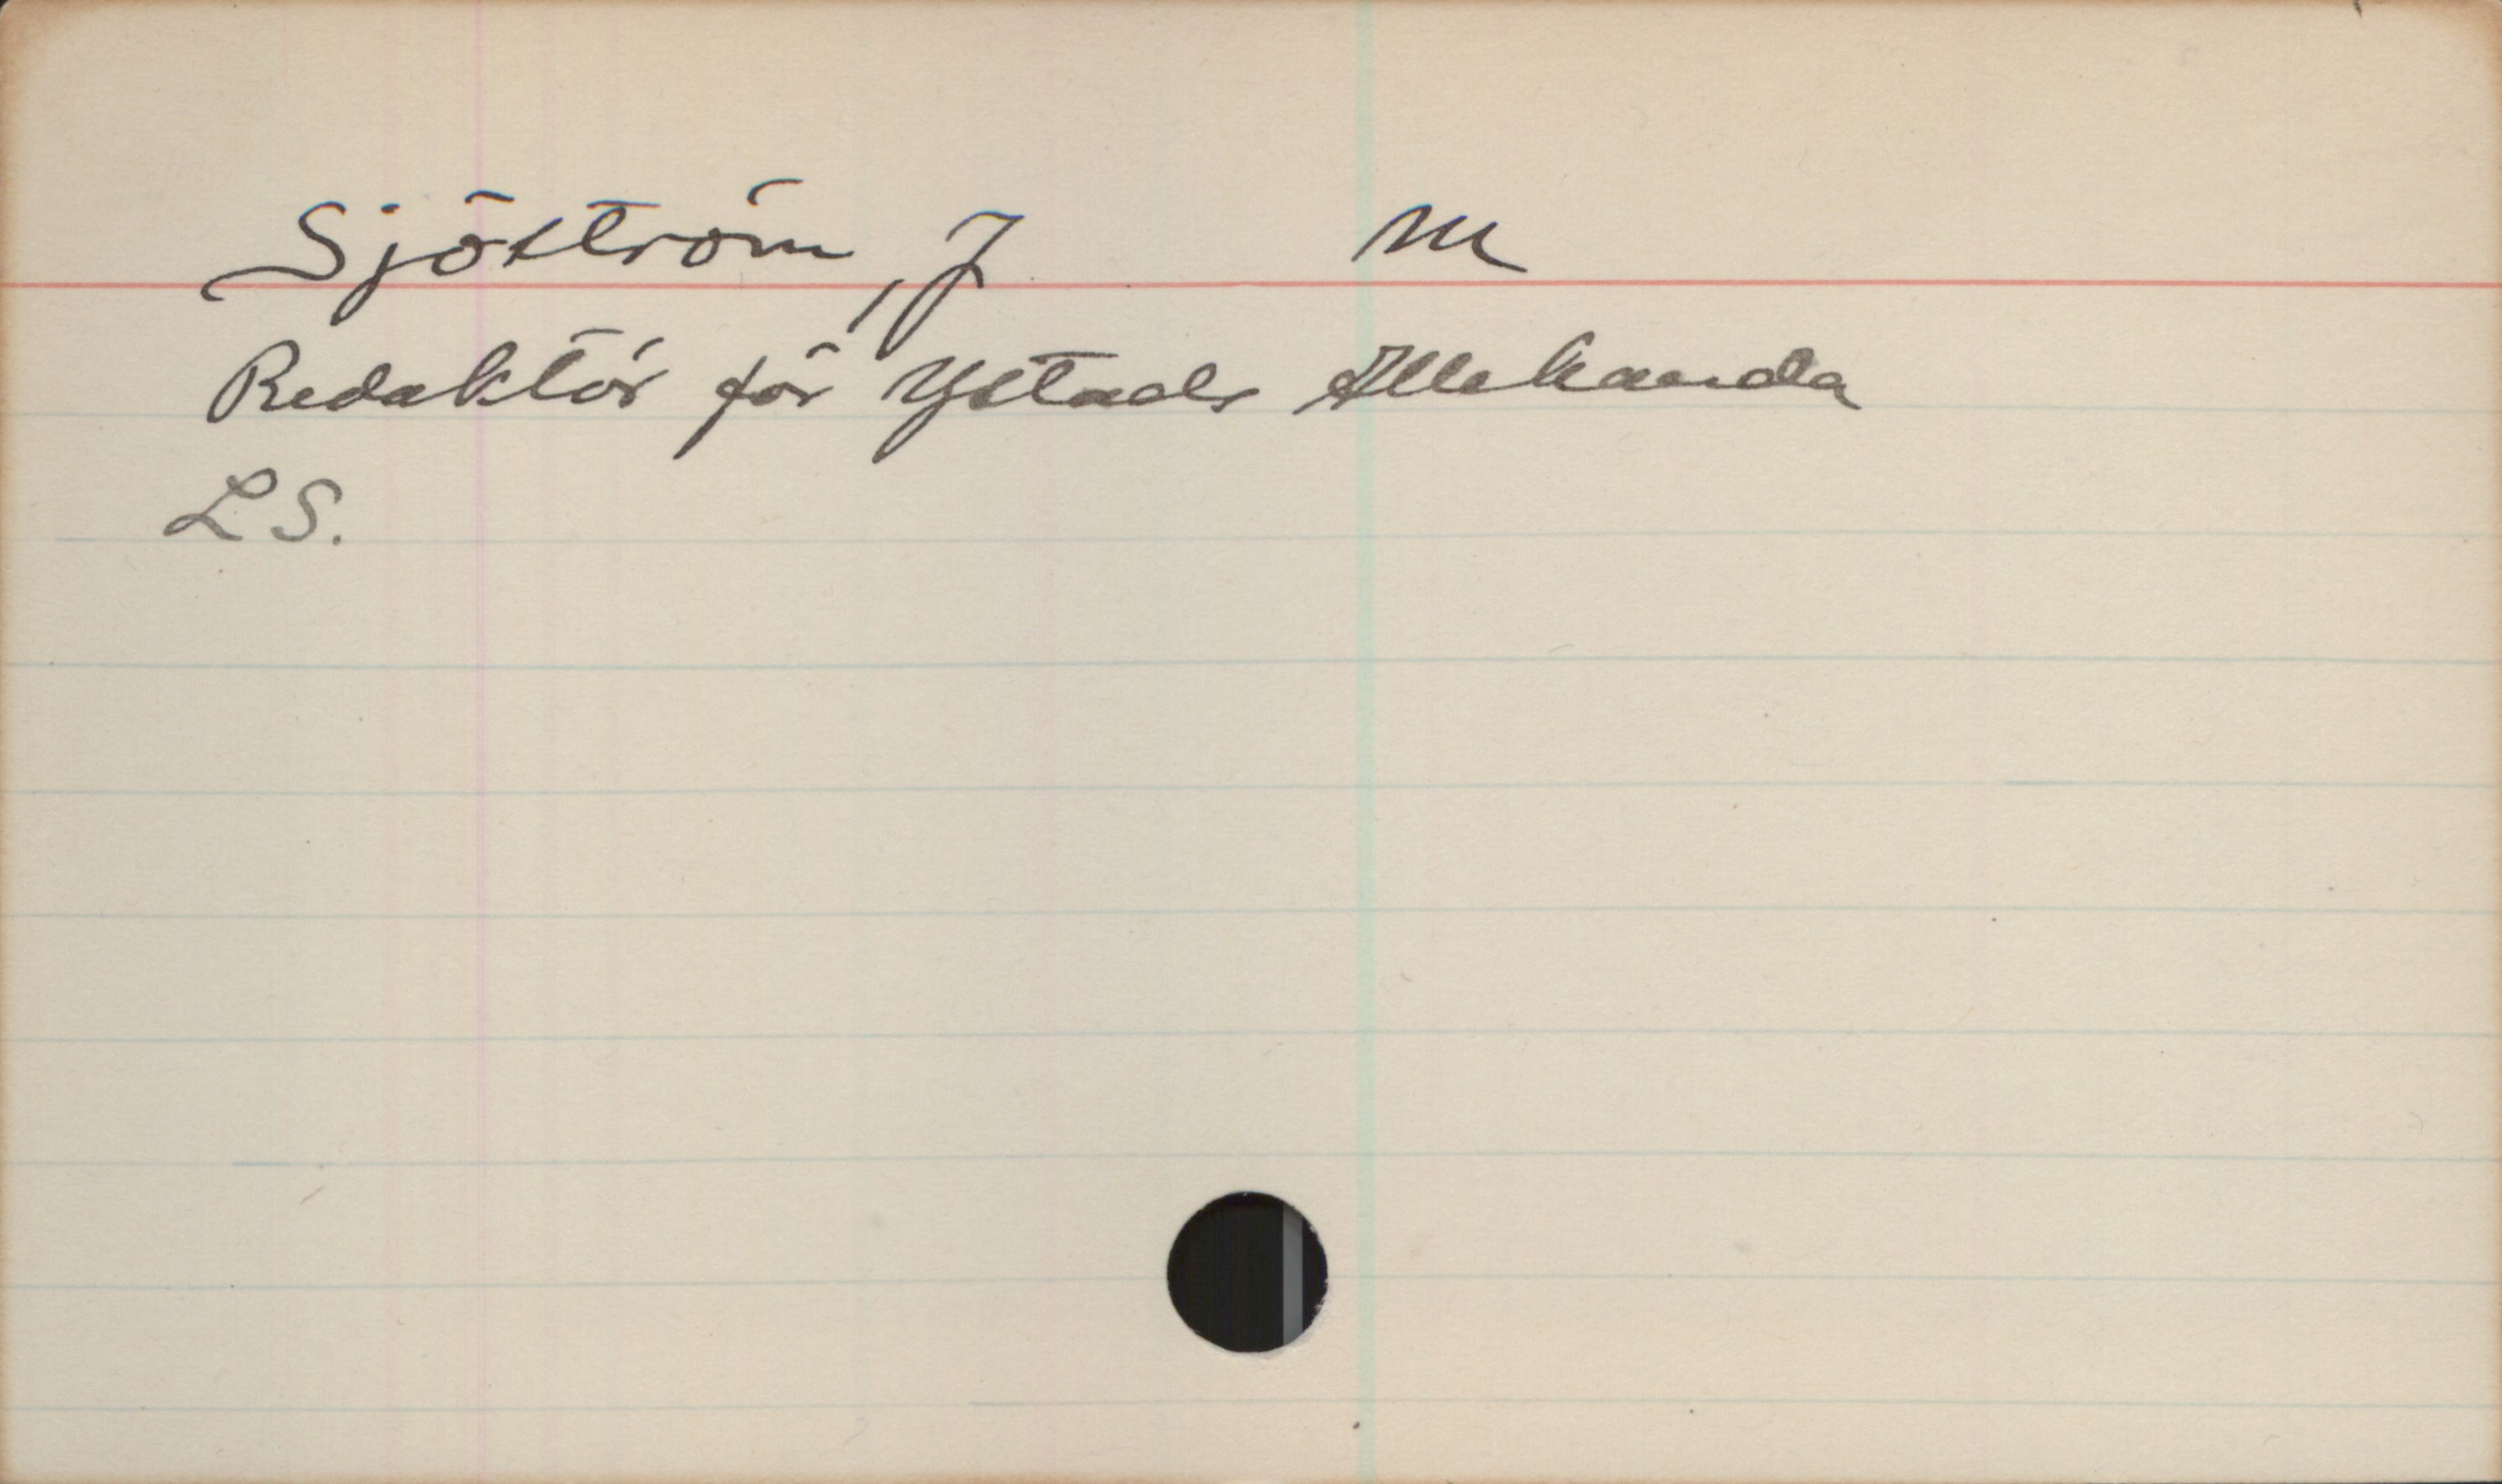 Sjöström, J M
Redaktör för Ystads Allehanda
LS.